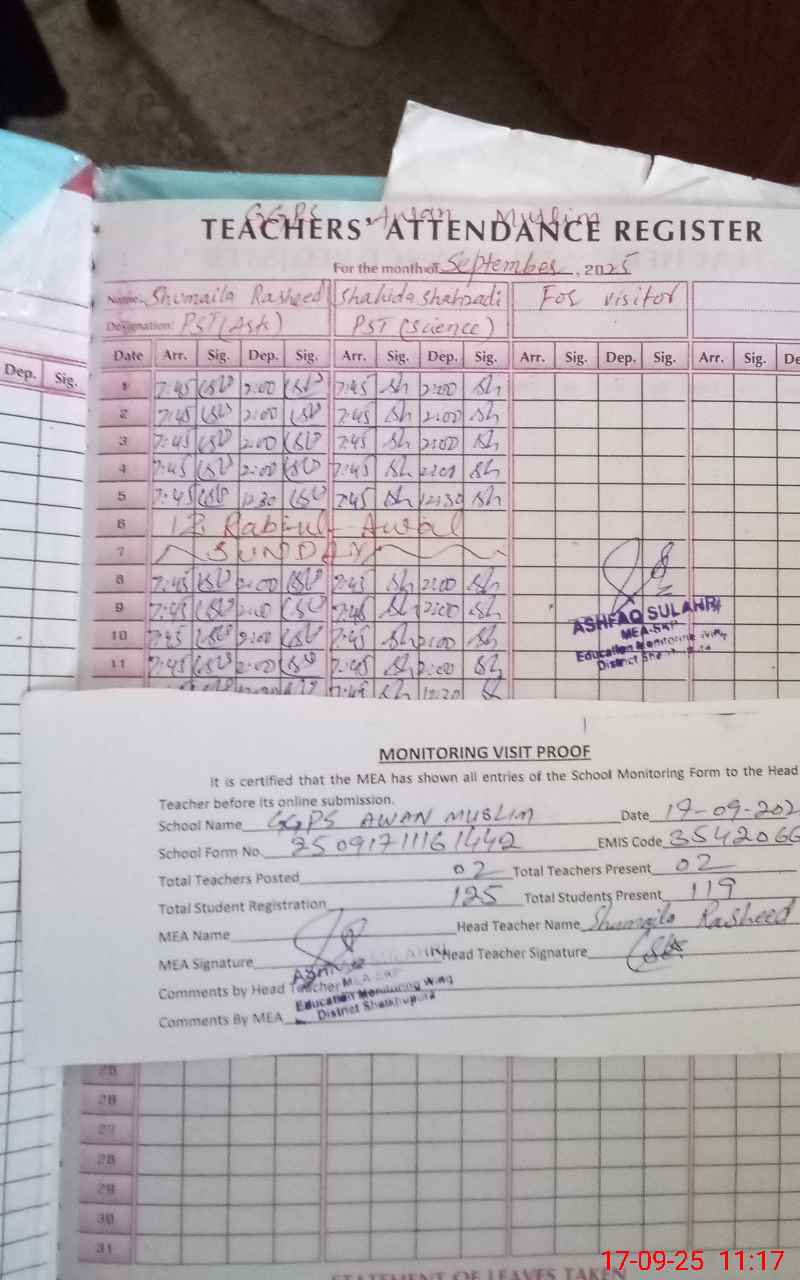 GGPS Awan Muslim
TEACHERS' ATTENDANCE REGISTER
For the month of September, 2025
Name: Shumaila Rasheed Shahida Shahzadi For visitor
Designation: PST (Ash) PST (Science)
Dep. Sig. Date Arr. Sig. Dep. Sig. Arr. Sig. Dep. Sig. Arr. Sig. Dep. Sig. Arr. Sig. De
1 7:45 2:00 7:45 Sh 2:00 Sh
2 7:45 2:00 7:45 Sh 2:00 Sh
3 7:45 2:00 7:45 Sh 2:00 Sh
4 7:45 2:00 7:45 Sh 2:00 Sh
5 7:45 12:30 7:45 Sh 12:30 Sh
6 12 Rabi ul Awal
7 SUNDAY
8 7:45 2:00 7:45 Sh 2:00 Sh
9 7:45 2:00 7:45 Sh 2:00 Sh
10 7:45 2:00 7:45 Sh 2:00 Sh
11 7:45 2:00 7:45 Sh 2:00 Sh
7:45 Sh 12:30 Sh
ASHFAQ SULAHRI
MEA-SKP
Education Monitoring Wing
District Sheikhupura
MONITORING VISIT PROOF
It is certified that the MEA has shown all entries of the School Monitoring Form to the Head
Teacher before its online submission.
School Name GGPS AWAN MUSLIM Date 17-09-202
School Form No. 25091711161442 EMIS Code 3542066
Total Teachers Posted 02 Total Teachers Present 02
Total Student Registration 125 Total Students Present 119
MEA Name Head Teacher Name Shumaila Rasheed
MEA Signature Head Teacher Signature
Comments by Head Teacher
Comments By MEA
Education Monitoring Wing
District Sheikhupura
25
26
27
28
29
30
31
STATEMENT OF LEAVES TAKEN
17-09-25 11:17